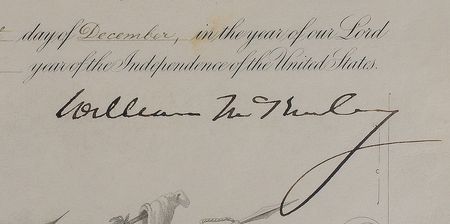 day of December, in the year of our Lord
year of the Independence of the United States.
William McKinley